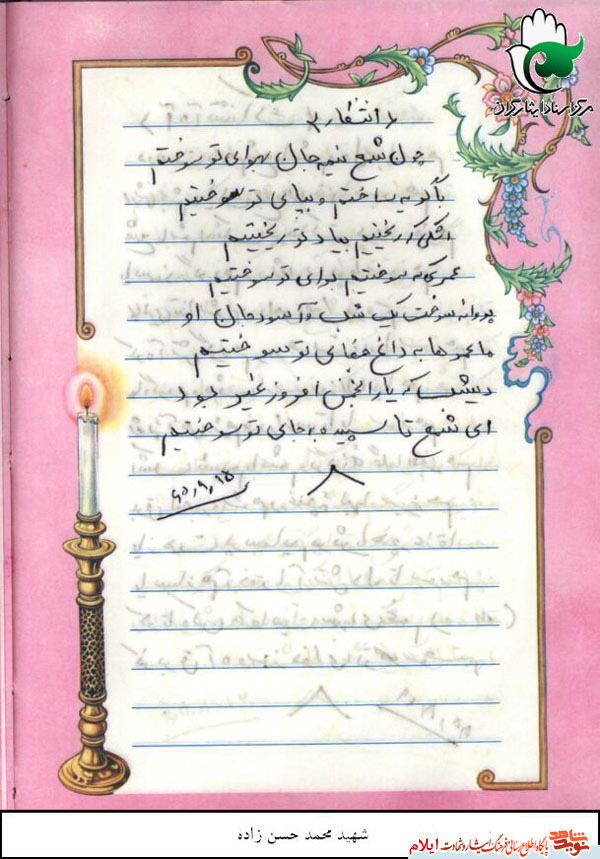 مرکز اسناد ایثارگران
« انتظار »
چون شمع نیمه جان بهوای تو سوختیم
با گریه ساختیم و بپای تو سوختیم
اشکی که ریختیم بیاد تو ریختیم
عمری که سوختیم برای تو سوختیم
پروانه سوخت یک شب و آسود جان او
ما عمرها به داغ جفای تو سوختیم
دیشب که یار انجمن افروز غیر بود
ای شمع تا سپیده به جای تو سوختیم
شهید محمد حسن زاده
نوید شاهد
پایگاه اطلاع رسانی فرهنگ ایثار و شهادت ایلام